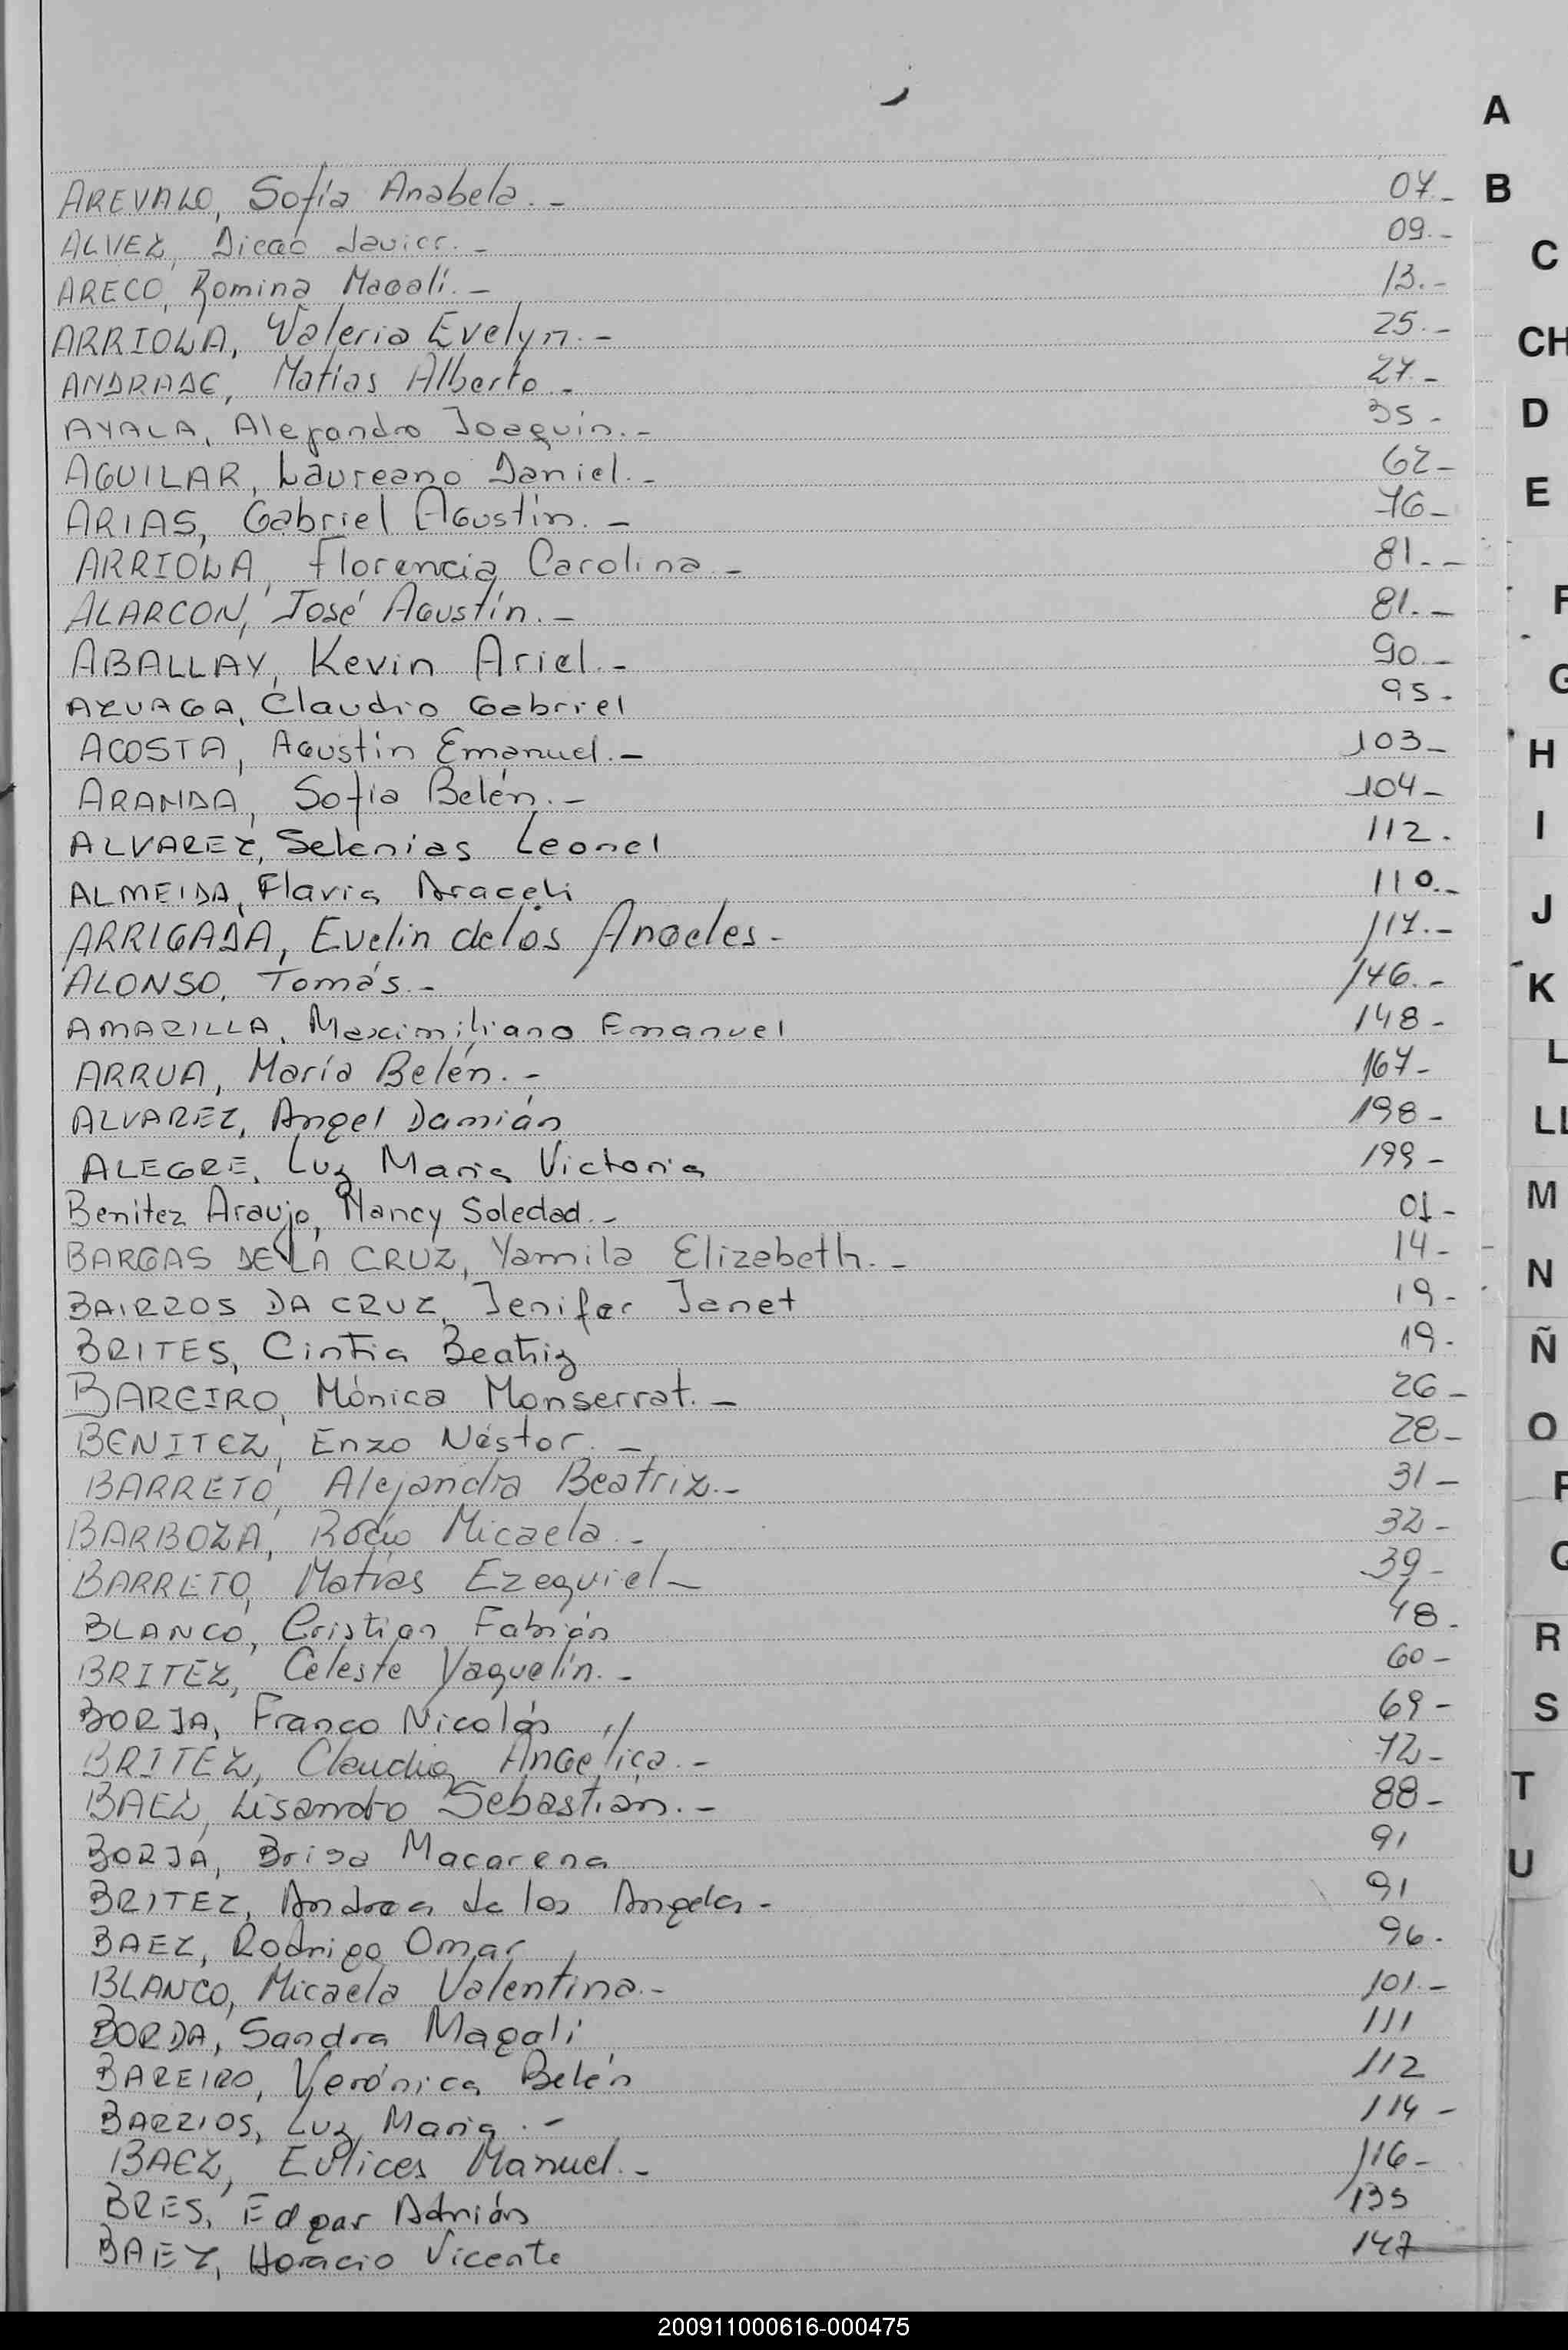 AREVALO, Sofía Anabela.- 07.-
ALVEZ, Diego Javier.- 09.-
ARECO, Romina Magalí.- 13.-
ARRIOLA, Valeria Evelyn.- 25.-
ANDRADE, Matías Alberto.- 27.-
AYALA, Alejandro Joaquín.- 35-
AGUILAR, Laureano Daniel.- 62-
ARIAS, Gabriel Agustín.- 76-
ARRIOLA, Florencia Carolina.- 81.--
ALARCON, José Agustín.- 81.-
ABALLAY, Kevin Ariel.- 90.-
AZUAGA, Claudio Gabriel 95-
ACOSTA, Agustín Emanuel.- 103-
ARANDA, Sofia Belén.- 104-
ALVAREZ, Selenias Leonel 112.
ALMEIDA, Flavia Araceli 110.-
ARRIGADA, Evelin de los Angeles- 117.-
ALONSO, Tomás.- 146.-
AMARILLA, Maximiliano Emanuel 148-
ARRUA, María Belén.- 167-
ALVAREZ, Angel Damián 198-
ALEGRE, Luz Maria Victoria 199-
Benitez Araujo, Nancy Soledad.- 01-
BARGAS DE LA CRUZ, Yamila Elizabeth.- 14-
BAIRROS DA CRUZ, Jenifer Janet 19-
BRITES, Cintia Beatriz 19-
BAREIRO, Mónica Monserrat.- 26-
BENITEZ, Enzo Néstor.- 28-
BARRETO, Alejandra Beatriz.- 31-
BARBOZA, Rocío Micaela.- 32-
BARRETO, Matías Ezequiel- 39-
BLANCO, Cristian Fabián 48-
BRITEZ, Celeste Yaquelín.- 60-
BORJA, Franco Nicolás 69-
BRITEZ, Claudia Angélica.- 72-
BAEZ, Lisandro Sebastián.- 88-
BORJA, Brisa Macarena 91
BRITEZ, Andrea de los Angeles- 91
BAEZ, Rodrigo Omar 96.
BLANCO, Micaela Valentina.- 101.-
BORDA, Sandra Magali 111
BAREIRO, Verónica Belén 112
BARRIOS, Luz Maria.- 114-
BAEZ, Eulices Manuel.- 116-
BRES, Edgar Adrián 135
BAEZ, Horacio Vicente 147
A
B
C
CH
D
E
F
G
H
I
J
K
L
LL
M
N
Ñ
O
P
Q
R
S
T
U
200911000616-000475